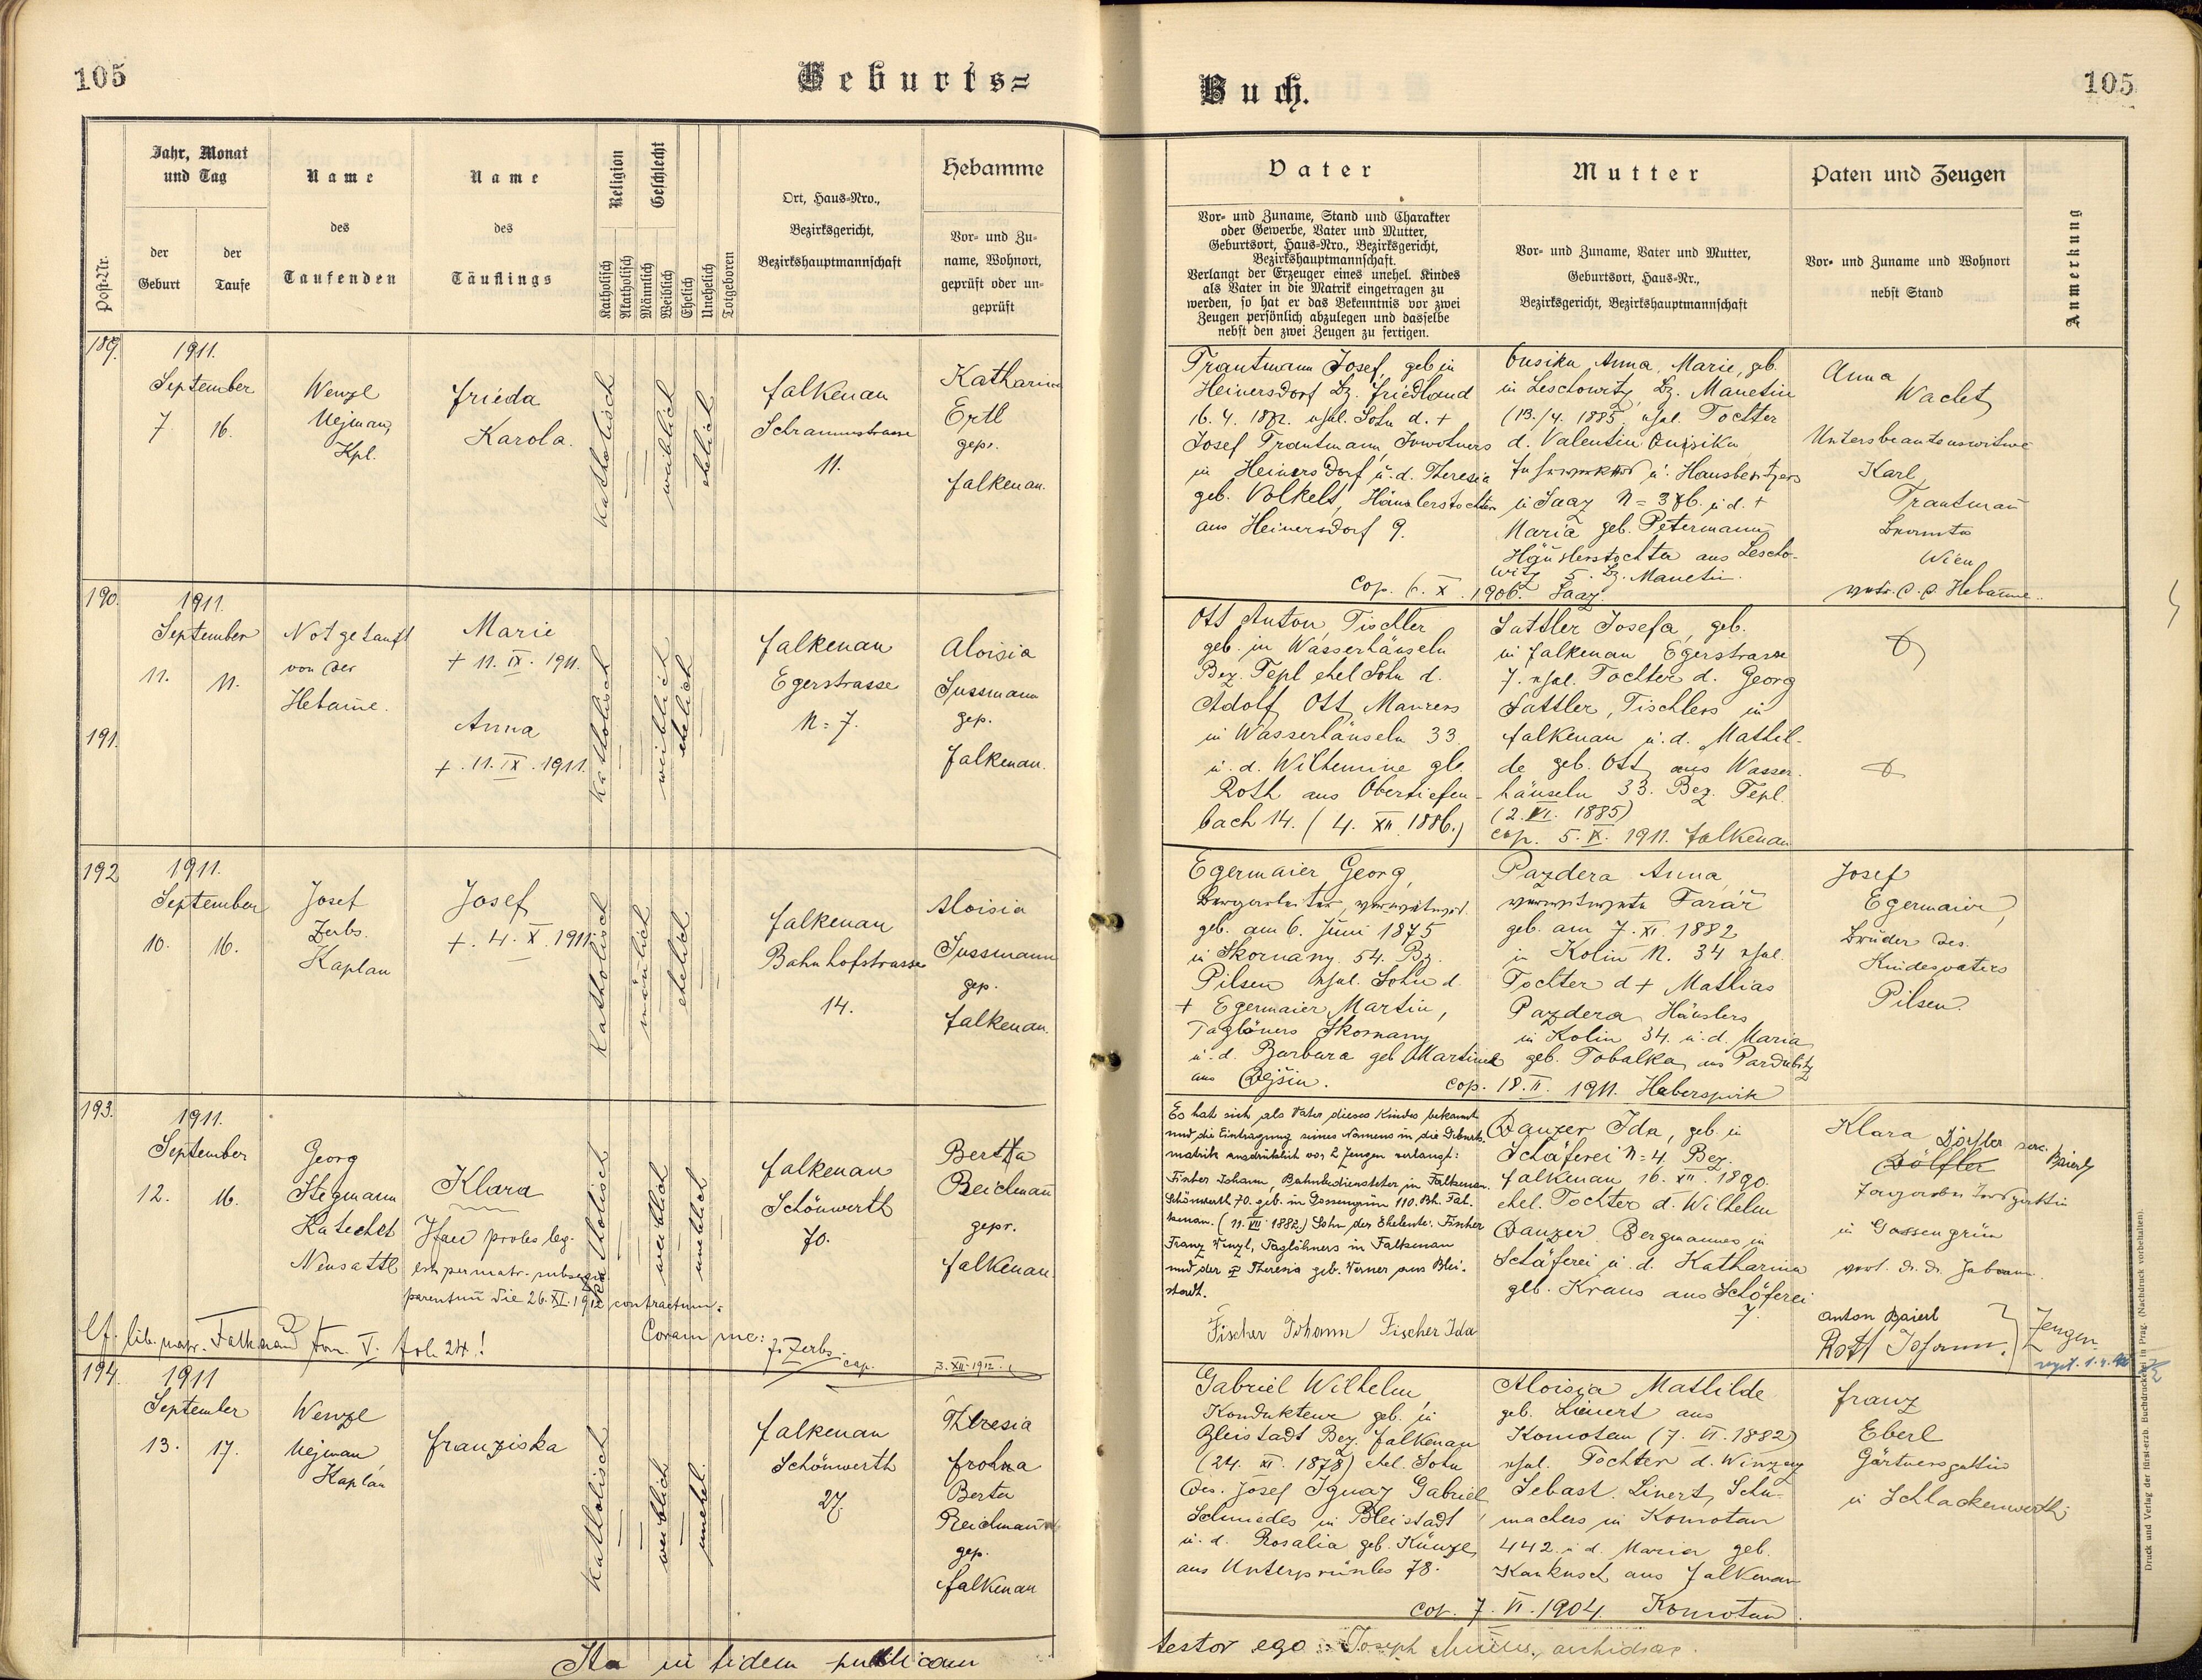 105
Geburts=
Buch.
105
Post-Nr.
Jahr, Monat
und Tag
der
Geburt
der
Taufe
Name
des
Taufenden
Name
des
Täuflings
Religion
Katholisch
Akatholisch
Geschlecht
Männlich
Weiblich
Ehelich
Unehelich
Totgeboren
Ort, Haus=Nro.,
Bezirksgericht,
Bezirkshauptmannschaft
Hebamme
Vor= und Zu=
name, Wohnort,
geprüft oder un=
geprüft
Vater
Vor= und Zuname, Stand und Charakter
oder Gewerbe, Vater und Mutter,
Geburtsort, Haus=Nro., Bezirksgericht,
Bezirkshauptmannschaft.
Verlangt der Erzeuger eines unehel. Kindes
als Vater in die Matrik eingetragen zu
werden, so hat er das Bekenntnis vor zwei
Zeugen persönlich abzulegen und dasselbe
nebst den zwei Zeugen zu fertigen.
Mutter
Vor= und Zuname, Vater und Mutter,
Geburtsort, Haus=Nr.,
Bezirksgericht, Bezirkshauptmannschaft
Paten und Zeugen
Vor= und Zuname und Wohnort
nebst Stand
Anmerkung
189.
1911.
September
7. 16.
Wenzl
Nejman,
Kpl.
Frieda
Karola.
katholisch
weiblich
ehelich
Falkenau
Schrammstrasse
11.
Katharina
Ertl
gepr.
Falkenau.
Trautmann Josef, geb in
Heinersdorf Bz. Friedland
16. 4. 1872. ehel. Sohn d. +
Josef Trautmann, Inwohners
in Heinersdorf u. d. Theresia
geb. Volkelt, Häuslerstochter
aus Heinersdorf 9.
Anna, Marie, geb.
in Leschowitz, Bz. Manetin
(13./4. 1885, ehel. Tochter
d. Valentin
u. Hausbesitzers
in Saaz N= 376. u. d. +
Maria geb. Petermann,
Häuslerstochter aus Lescho-
witz 5. Bz. Manetin.
cop. 6. X. 1906. Saaz.
Anna
Wachet
Unterbeamtenswitwe
Karl
Trautman
Beamter
Wien
Hebamme.
190.
1911.
September
11. 11.
Notgetauft
von der
Hebame.
Marie
+ 11. IX. 1911.
191.
Anna
+. 11. IX. 1911.
katholisch
weiblich
ehelich
Falkenau
Egerstrasse
N= 7.
Aloisia
Sussmann
gep.
Falkenau.
Ott Anton, Tischler
geb. in Wasserhäuseln
Bez. Tepl ehel Sohn d.
Adolf Ott, Maurers
in Wasserhäuseln 33
u. d. Wilhemine geb.
Roth aus Obertiefen-
bach 14. (4. XII. 1886.)
Sattler Josefa, geb.
in Falkenau Egerstrasse
7. ehel. Tochter d. Georg
Sattler, Tischlers in
Falkenau u. d. Mathil-
de geb. Ott, aus Wasser-
häuseln 33. Bez. Tepl.
(2. VI. 1885)
cop. 5. IX. 1911. Falkenau
192
1911.
September
10. 16.
Josef
Zerbs.
Kaplan
Josef
+. 4. X. 1911.
katholisch
mänlich
ehelich
Falkenau
Bahnhofstrasse
14.
Aloisia
Sussmann
gep.
Falkenau.
Egermaier Georg,
Bergarbeiter,
geb. am 6. Juni 1875
in Skornany. 54. Bz.
Pilsen ehel. Sohn d.
+ Egermaier Martin,
Taglöners Skornany
u. d. Barbara geb Martinek
aus
Pazdera Anna
verwitwete Farář
geb. am 7. XI. 1882
in Kolin N. 34 ehel.
Tochter d + Mathias
Pazdera Häuslers
in Kolin 34. u. d. Maria
geb. Tobalka, aus Pardubitz
cop. 18. II. 1911. Haberspirk
Josef
Egermaier,
Bruder des
Kindesvaters
Pilsen.
193.
1911.
September
12. 16.
Georg
Stegmann
Katechet
Neusattl
Klara
Ifan proles leg.
est per matr. subseque
parentum die 26. XI. 1912 contractum.
katholisch
weiblich
unehlich
Falkenau
Schönwerth
70.
Bertha
Reichman
gepr.
Falkenau.
Es hat sich als Vater dieses Kindes bekannt
und die Eintragung seines Namens in die Geburts-
matrik ausdrücklich vor 2 Zeugen verlangt:
Fischer Johann, Bahnbediensteter in Falkenau.
Schönwerth 70. geb. in Gossengrün 110. Bh. Fal-
kenau. (11. VII. 1882.) Sohn der Eheleute: Fischer
Franz Wenzl, Taglöhners in Falkenau
und der Theresia geb. Werner aus Blei-
stadt.
Fischer Johann Fischer Ida
Danzer Ida, geb. in
Schäferei N= 4 Bez.
Falkenau 16. XII. 1890.
ehel. Tochter d. Wilhelm
Danzer Bergmannes in
Schäferei u. d. Katharina
geb. Kraus aus Schäferei
7.
Klara Dörfler
Dölfler
Baierl
in Gossengrün
Anton Baierl
Roth Johann.
Zeugen.
Cf. lib. matr. Falkenau tom. V. fol. 24!
Coram me:
Js Zerbs
cap.
3. XII. 1912.
194.
1911
September
13. 17.
Wenzl
Nejman
Kaplan
Franziska
katholisch
weiblich
unehel.
Falkenau
Schönwerth
27.
Theresia
Frohna
Berta
Reichman
gep.
Falkenau
Gabriel Wilhelm
Kondukteur geb. in
Bleistadt Bez. Falkenau
(24. XI. 1878) ehel. Sohn
des. Josef Ignaz Gabriel
Schmiedes in Bleistadt
u. d. Rosalia geb. Künzl,
aus Unterprünles 78.
Aloisia Mathilde
geb. Lienert aus
Komotau (7. VI. 1882)
ehel. Tochter d. Winzenz
Sebast. Linert, Schu-
machers in Komotau
442. u d. Maria geb.
aus Falkenau
cop. 7. VI. 1904. Komotau.
Franz
Eberl
Gärtnersgattin
in Schlackenwerth
Ita in fidem publicam
testor ego: Joseph
Druck und Verlag der fürst-erzb. Buchdruckerei in Prag. (Nachdruck vorbehalten).